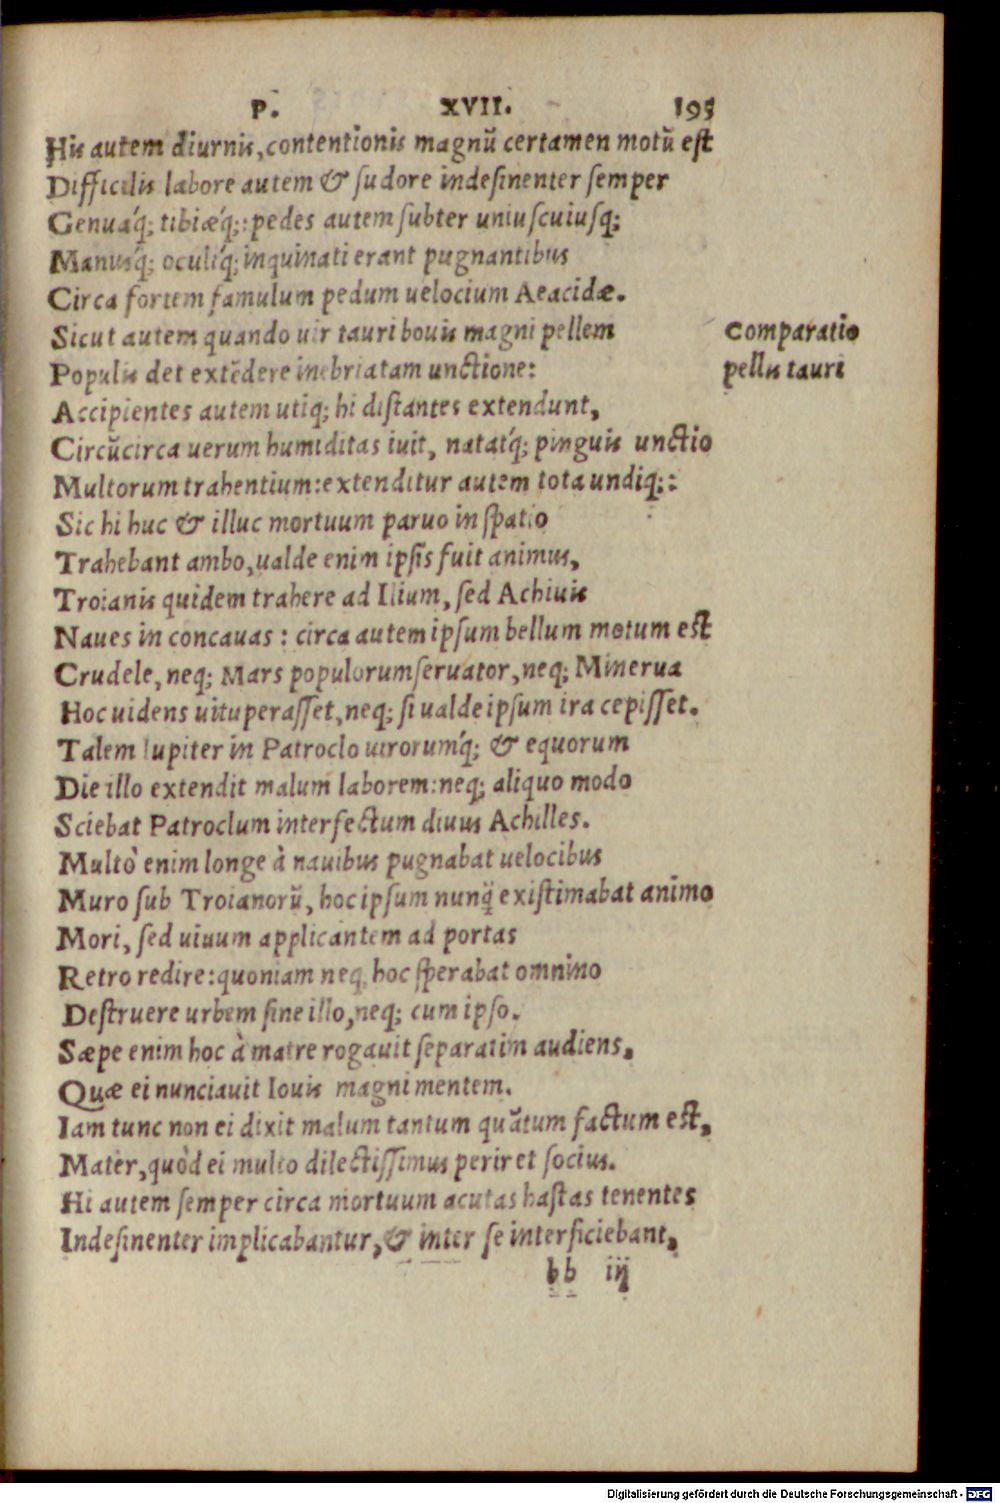 P. XVII. 195
His autem diurnis, contentionis magnũ certamen motũ est
Difficilis labore autem & sudore indesinenter semper
Genuáq; tibiæq́;: pedes autem subter uniuscuiusq;
Manusq́; oculiq́; inquinati erant pugnantibus
Circa fortem famulum pedum uelocium Aeacidæ.
Sicut autem quando uir tauri bouis magni pellem
Comparatio
Populis det extẽdere inebriatam unctione:
pellis tauri
Accipientes autem utiq; hi distantes extendunt,
Circũcirca uerum humiditas iuit, natatq́; pinguis unctio
Multorum trahentium: extenditur autem tota undiq;:
Sic hi huc & illuc mortuum paruo in spatio
Trahebant ambo, ualde enim ipsis fuit animus,
Troianis quidem trahere ad Ilium, sed Achiuis
Naues in concauas : circa autem ipsum bellum motum est
Crudele, neq; Mars populorum seruator, neq; Minerua
Hoc uidens uituperasset, neq; si ualde ipsum ira cepisset.
Talem Iupiter in Patroclo uirorumq́; & equorum
Die illo extendit malum laborem: neq; aliquo modo
Sciebat Patroclum interfectum diuus Achilles.
Multò enim longe à nauibus pugnabat uelocibus
Muro sub Troianorũ, hoc ipsum nunq̃ existimabat animo
Mori, sed uiuum applicantem ad portas
Retro redire: quoniam neq; hoc sperabat omnino
Destruere urbem sine illo, neq; cum ipso.
Sæpe enim hoc à matre rogauit separatim audiens,
Quæ ei nunciauit Iouis magni mentem.
Iam tunc non ei dixit malum tantum quãtum factum est,
Mater, quòd ei multo dilectissimus periret socius.
Hi autem semper circa mortuum acutas hastas tenentes
Indesinenter implicabantur, & inter se interficiebant,
bb iij
Digitalisierung gefördert durch die Deutsche Forschungsgemeinschaft - DFG